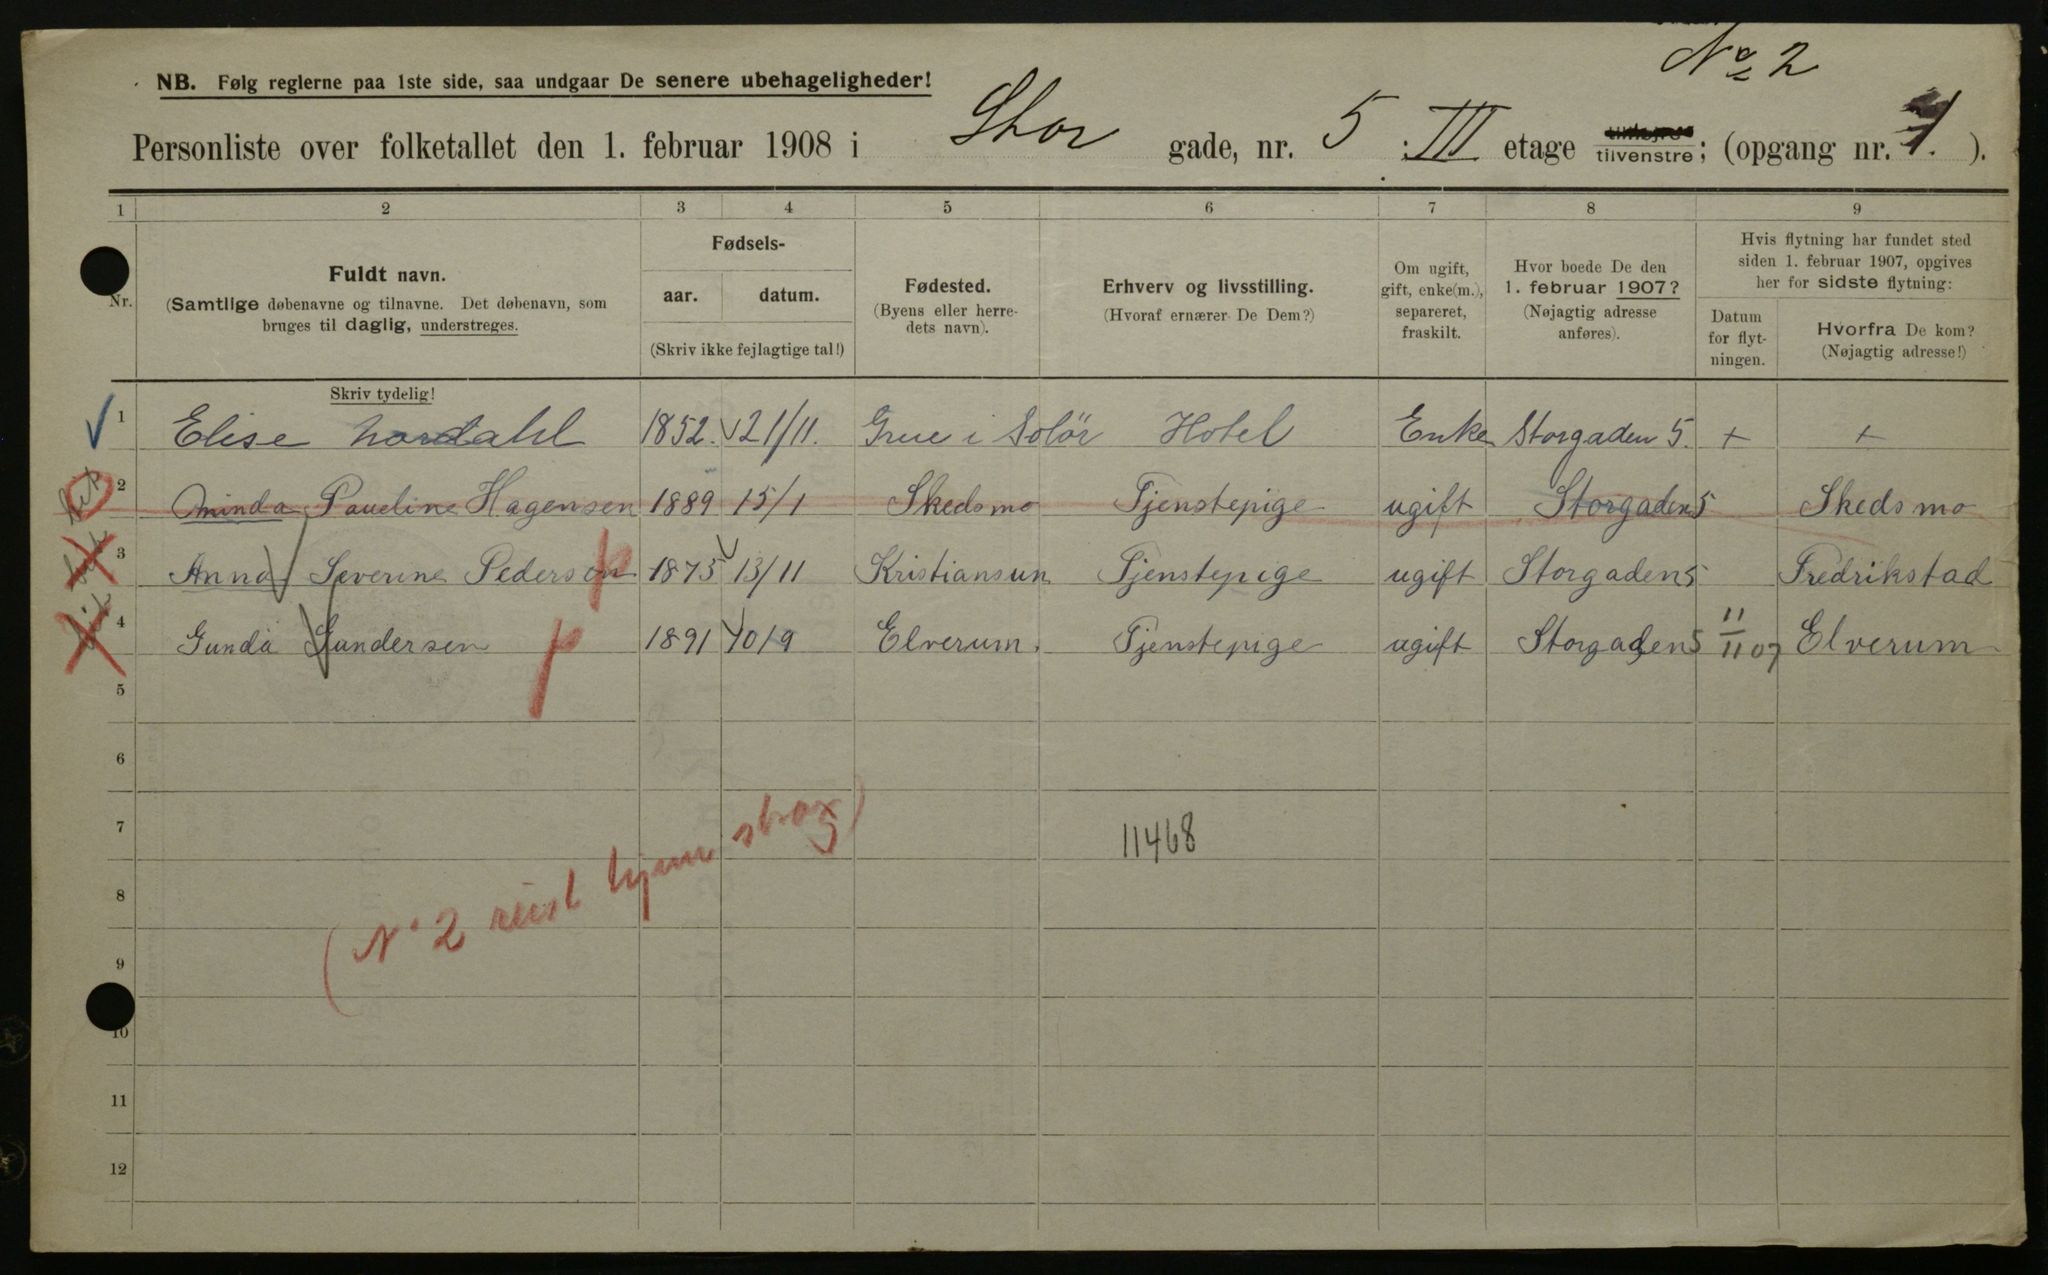 No 2
NB. Følg reglerne paa 1ste side, saa undgaar De senere ubehageligheder!
Personliste over folketallet den 1. februar 1908 i Stor gade, nr. 5 : III etage tilhøjre tilvenstre; (opgang nr. 1. ).
1 2 3 4 5 6 7 8 9
Nr.
Fuldt navn.
(Samtlige døbenavne og tilnavne. Det døbenavn, som
bruges til daglig, understreges.
Skriv tydelig!
Fødsels-
aar. datum.
(Skriv ikke fejlagtige tal!)
Fødested.
(Byens eller herre-
dets navn).
Erhverv og livsstilling.
(Hvoraf ernærer De Dem?)
Om ugift,
gift, enke(m.),
separeret,
fraskilt.
Hvor boede De den
1. februar 1907?
(Nøjagtig adresse
anføres).
Hvis flytning har fundet sted
siden 1. februar 1907, opgives
her for sidste flytning:
Datum
for flyt-
ningen.
Hvorfra De kom?
(Nøjagtig adresse!)
1 Elise Nordahl 1852. 21/11. Grue i Solör Hotel Enke Storgaden 5. + +
2 Minda Pauline Hagensen 1889 15/1 Skedsmo Tjenstepige ugift Storgaden 5 Skedsmo
3 Anna Severine Pedersen 1875 13/11 Kristiansun Tjenstepige ugift Storgaden 5 Fredrikstad
4 Gunda Gundersen 1891 10/9 Elverum. Tjenstepige ugift Storgaden 5 11/11 07 Elverum
5
6
7 11468
8
(No 2 reist hjem strax)
9
10
11
12